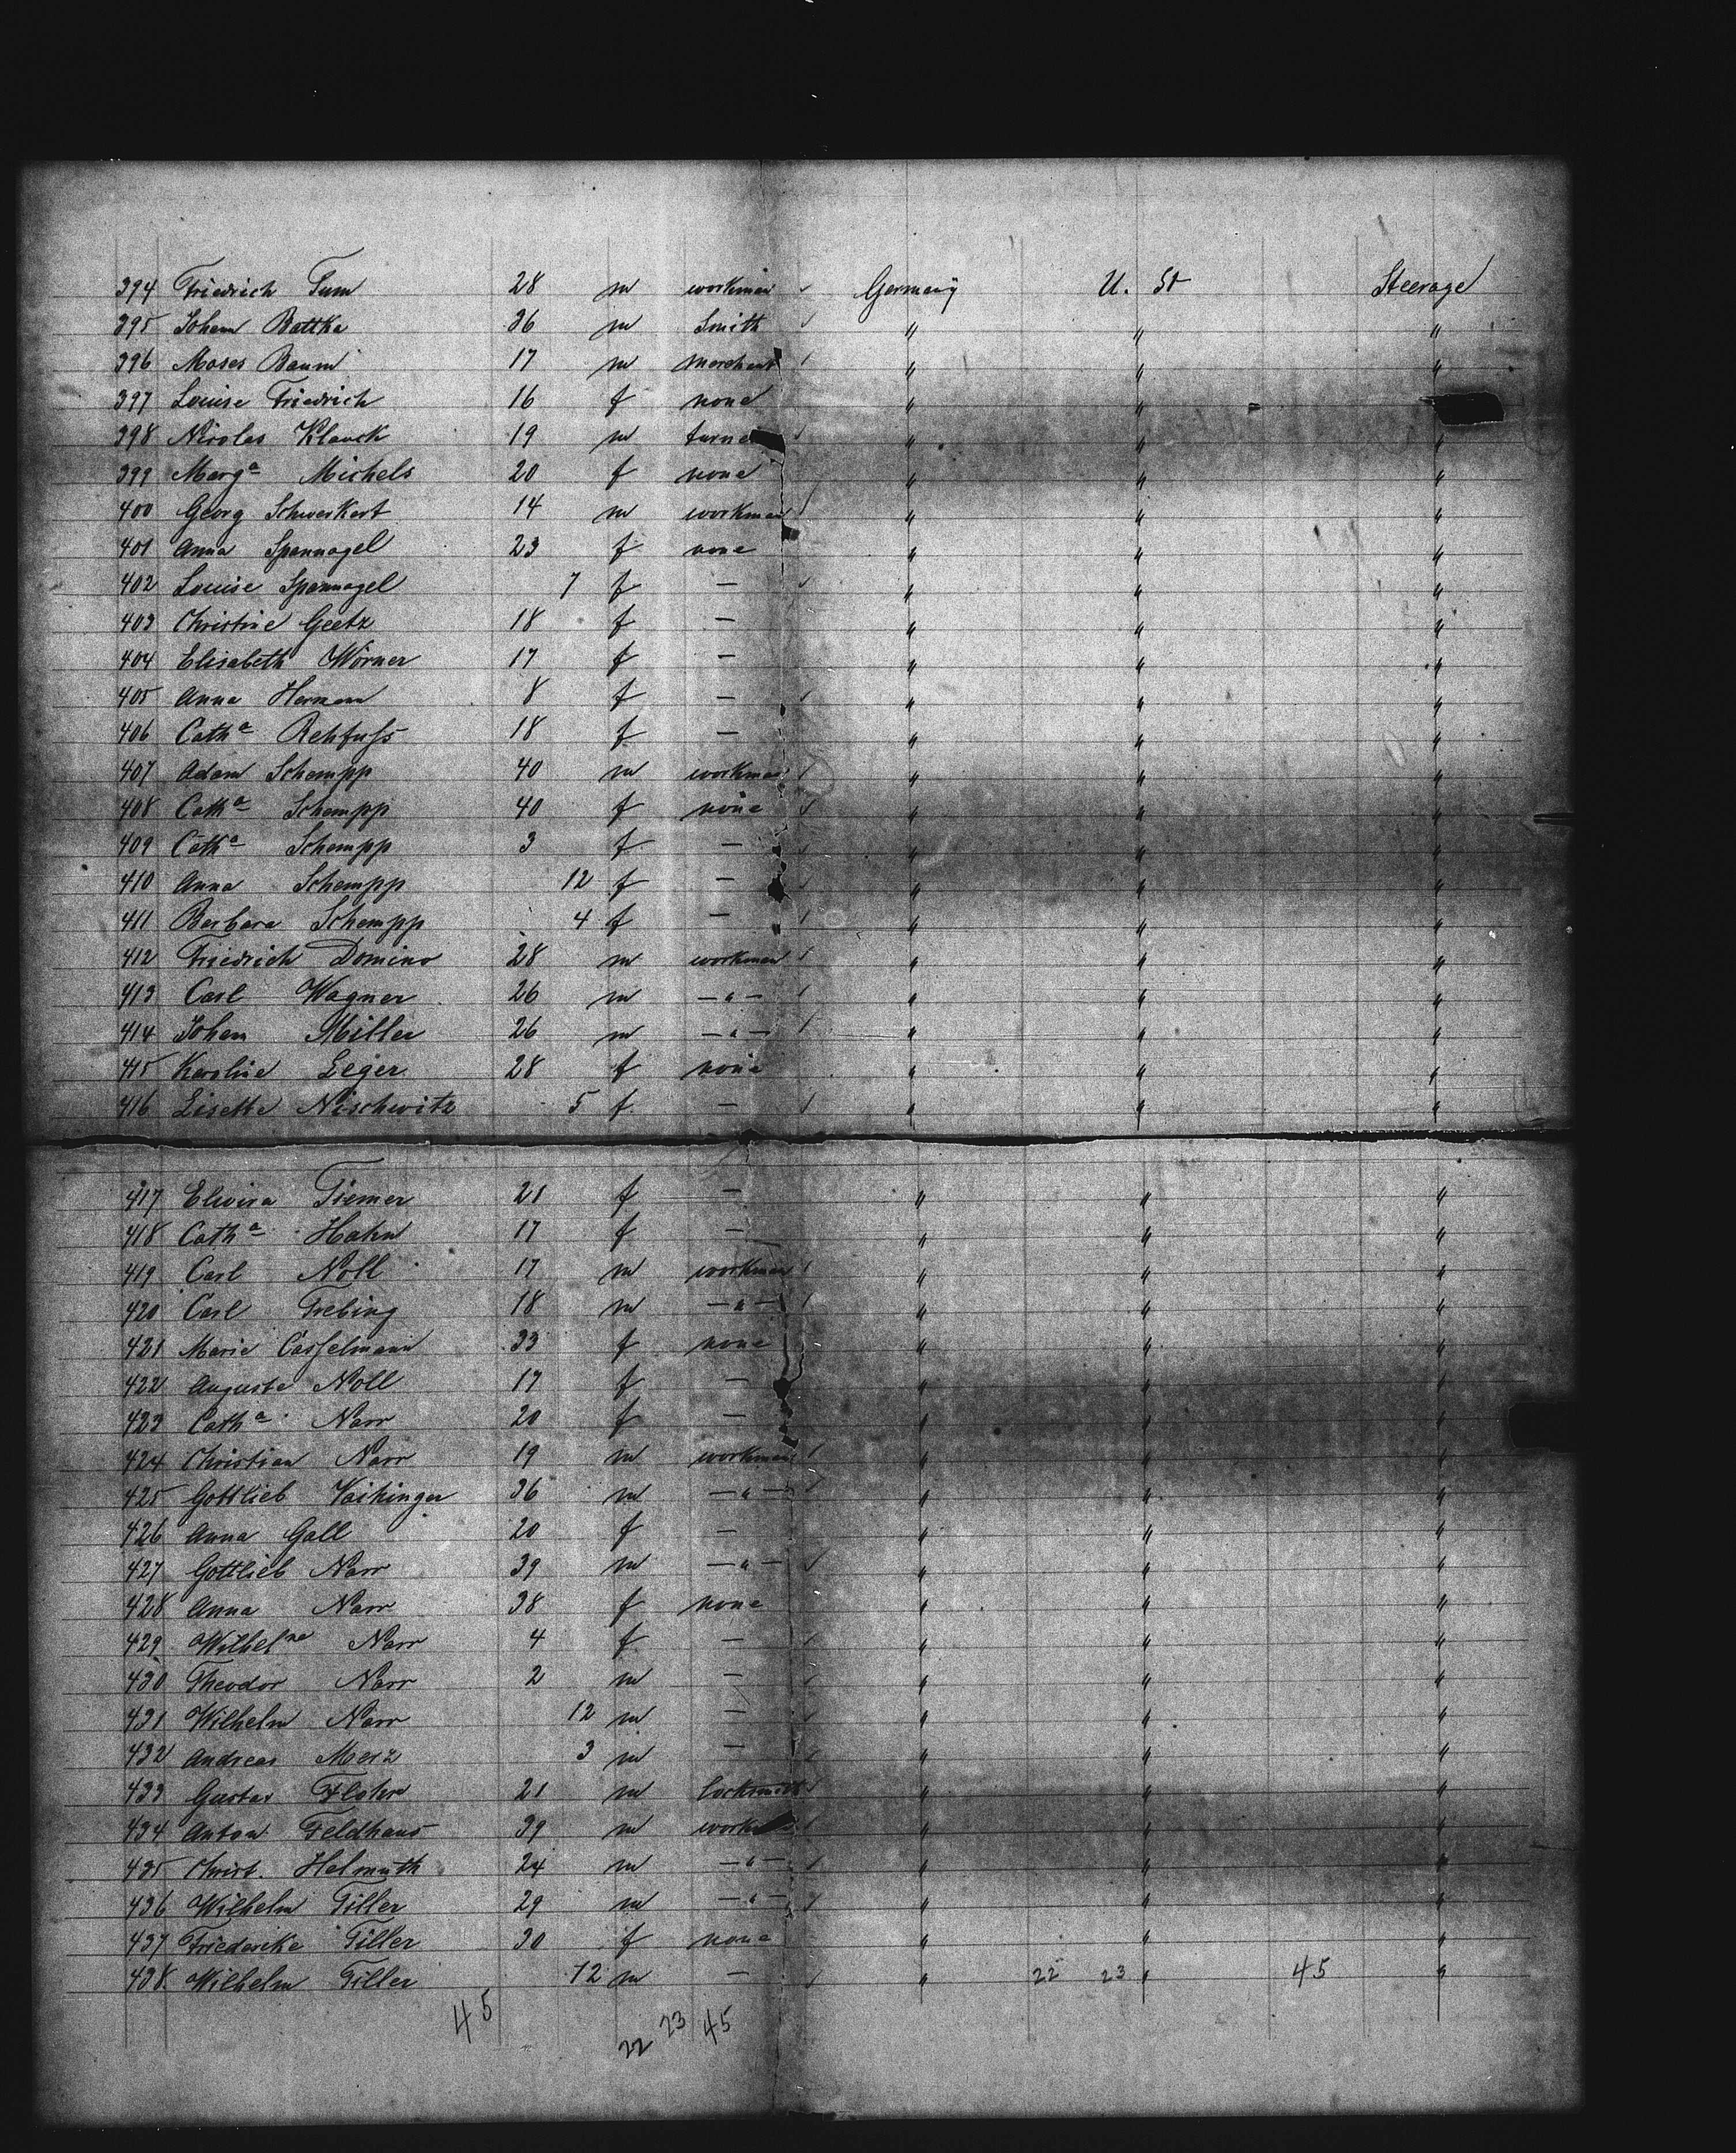 394 Friedrich Tum 28 m workman ✓ Germany U. St Steerage
395 Johann Battka 36 m Smith ✓ " " "
396 Moses Baum 17 m merchant ✓ " " "
397 Louise Friedrich 16 f none " " "
398 Nicolas Klauck 19 m turne ✓ " " "
399 Marga Michels 20 f none " " "
400 Georg Schweikert 14 m workman ✓ " " "
401 Anna Spannagel 23 f none " " "
402 Louise Spannagel 7 f — ✓ " " "
403 Christine Geetz 18 f — " " "
404 Elisabeth Wörner 17 f — " " "
405 Anna Herman 8 f — ✓ " " "
406 Catha Rehfuss 18 f — " " "
407 Adam Schempp 40 m workman ✓ " " "
408 Catha Schempp 40 f none ✓ " " "
409 Catha Schempp 3 f — ✓ " " "
410 Anna Schempp 12 f — ✓ " " "
411 Barbara Schempp 4 f — ✓ " " "
412 Friedrich Domino 28 m workman ✓ " " "
413 Carl Wagner 26 m —"— ✓ " " "
414 Johan Miller 26 m —"— ✓ " " "
415 Karoline Leger 28 f none " " "
416 Lisette Nischwitz 5 f — ✓ " " "
417 Elwira Tiemer 21 f — " " "
418 Catha Hahn 17 f — " " "
419 Carl Noll 17 m workman ✓ " " "
420 Carl Trebing 18 m —"— ✓ " " "
421 Marie Casselmann 33 f none " " "
422 Auguste Noll 17 f — " " "
423 Catha Narr 20 f — " " "
424 Christian Narr 19 m workman ✓ " " "
425 Gottlieb Vaihinger 36 m —"— ✓ " " "
426 Anna Gall 20 f — " " "
427 Gottlieb Narr 39 m —"— ✓ " " "
428 Anna Narr 38 f none " " "
429 Wilhelne Narr 4 f — ✓ " " "
430 Theodor Narr 2 m — ✓ " " "
431 Wilhelm Narr 12 m — ✓ " " "
432 Andreas Merz 3 m — ✓ " " "
433 Gustav Flohr 21 m locksmith ✓ " " "
434 Anton Feldhaus 39 m workm ✓ " " "
435 Christ. Helmuth 24 m —"— ✓ " " "
436 Wilhelm Tiller 29 m —"— ✓ " " "
437 Friederike Tiller 30 f none " " "
438 Wilhelm Tiller 12 m — ✓ " 22 23 " 45 "
45 22 23 45